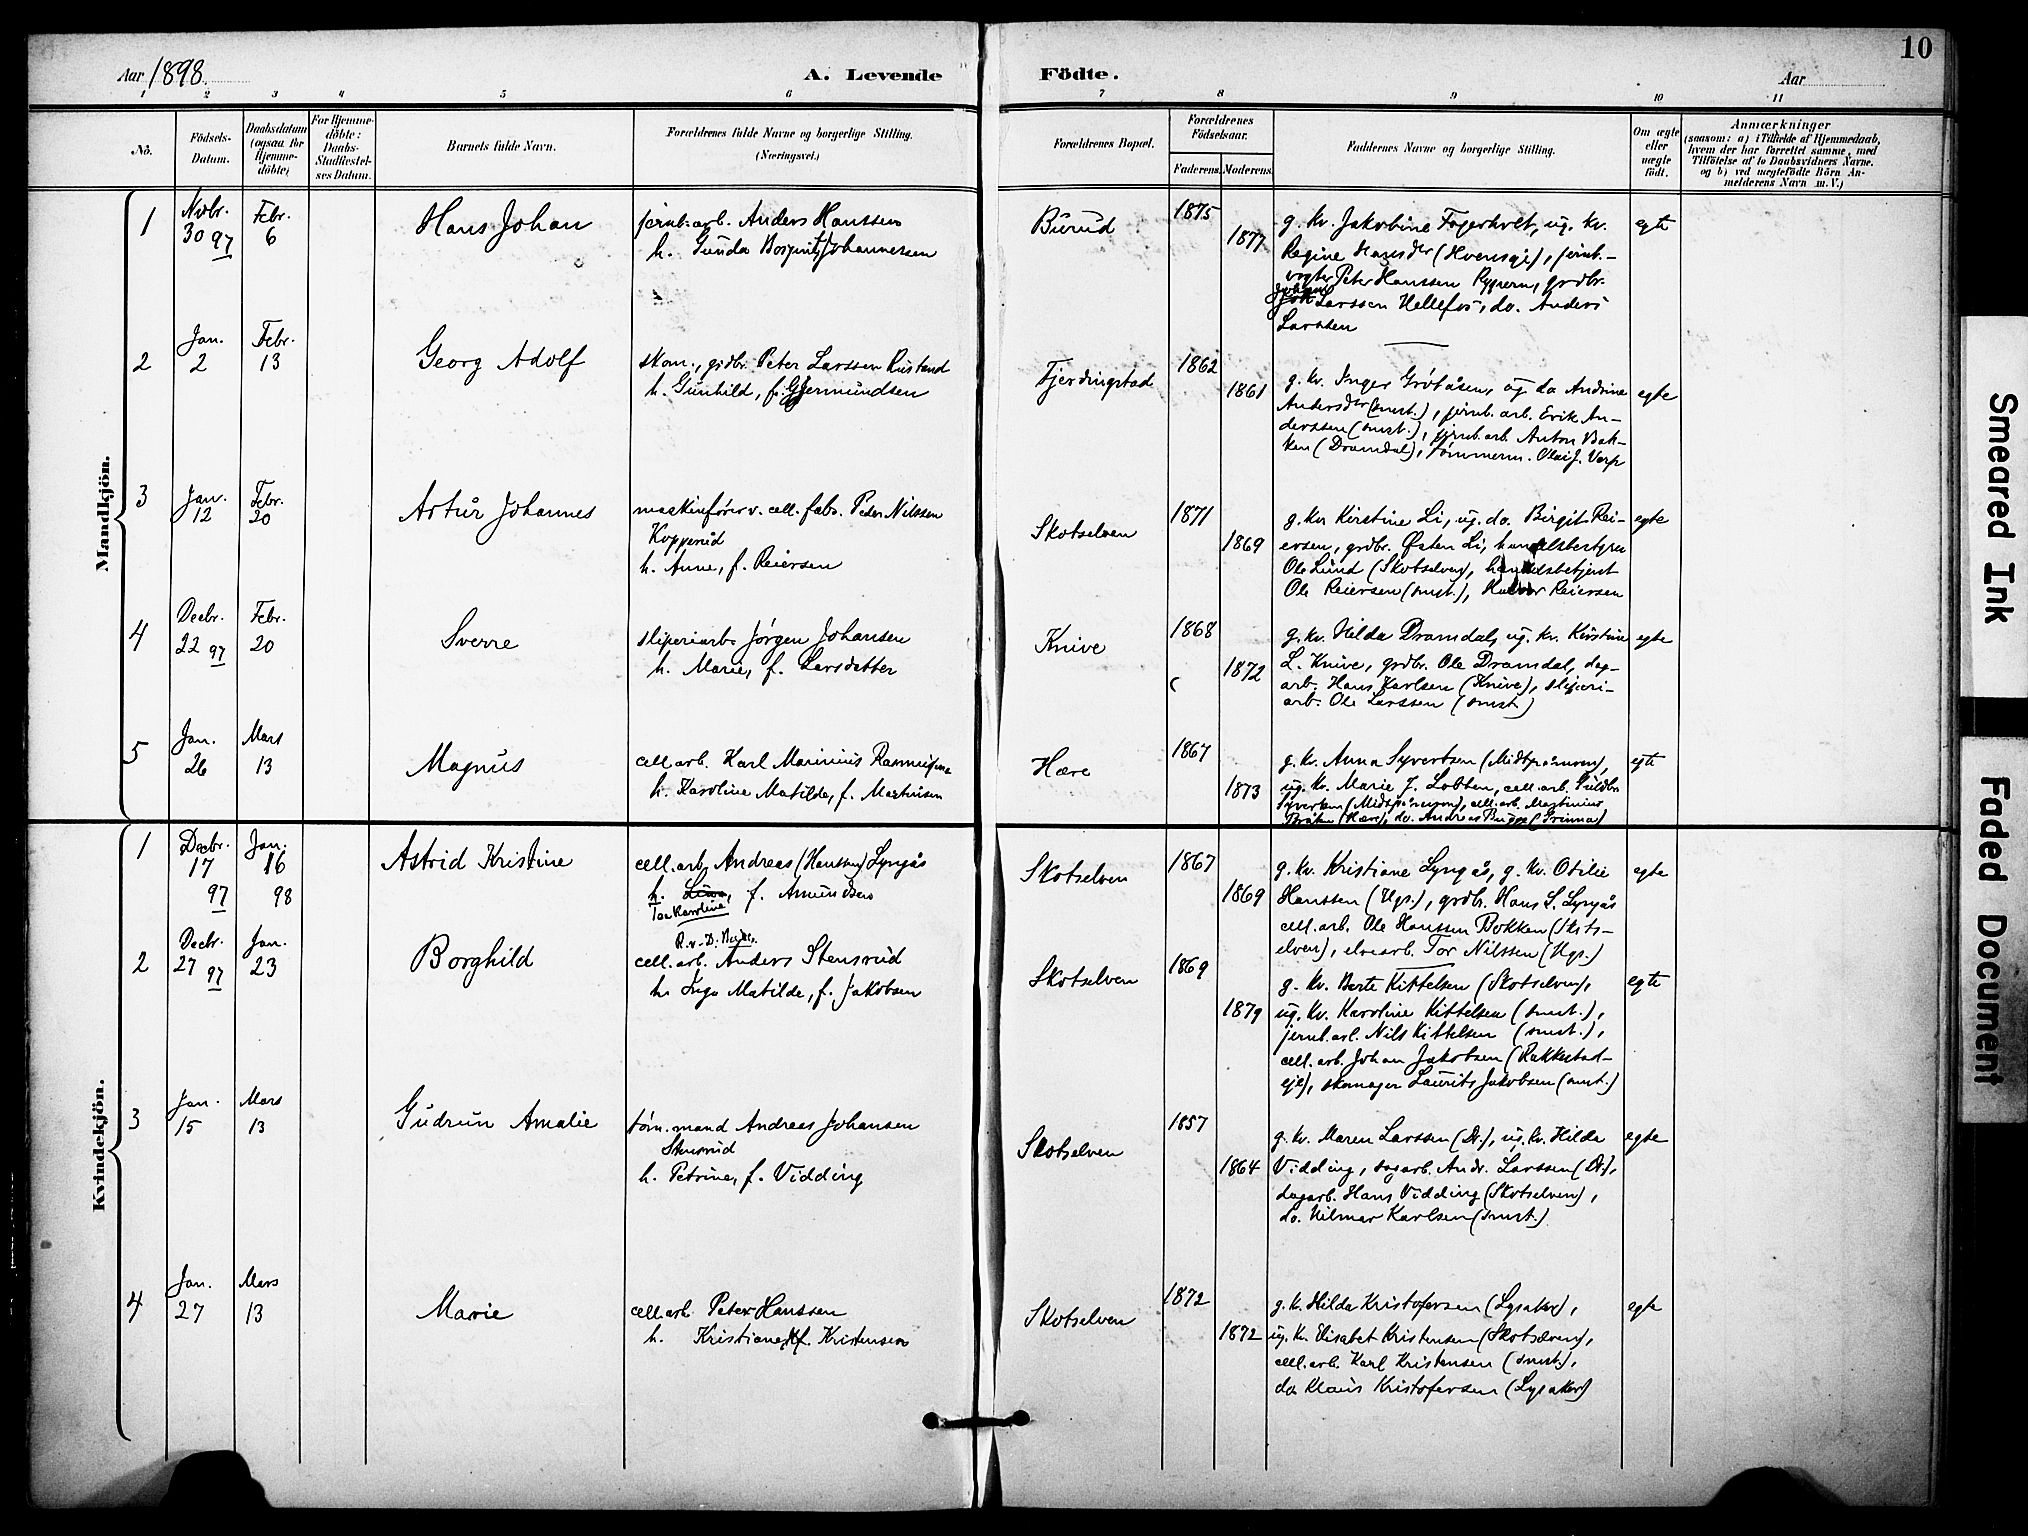 10
Aar 1898
A. Levende
Födte.
Aar
1 2 3 4 5 6 7 8 9 10 11
No.
Födsels-
Datum.
Daabsdatum
(ogsaa for
Hjemme-
döbte)
For Hjemme-
döbte:
Daabs-
Stadfæstel-
ses Datum.
Barnets fulde Navn.
Forældrenes fulde Navne og borgerlige Stilling.
(Næringsvei.)
Forældrenes Bopæl.
Forældrenes
Födselsaar.
Faderens. Moderens.
Faddernes Navne og borgerlige Stilling.
Om ægte
eller
uægte
født.
Anmærkninger
(saasom: a) i Tilfælde af Hjemmedaab,
hvem der har forrettet samme, med
Tilföielse af to Daabsvidners Navne.
og b) ved uægtefödte Börn An-
melderens Navn m. V.)
Mandkjön.
1
Novbr.
30 97
Febr.
6
Hans Johan
jernb.arb. Anders Hanssen
h. Gunda Johannessen
Burud
1875
1877
g. kv. Jakobine Fagerholt, ug. kv.
Regine Hansdtr (Hvenseje), jernb.-
vogter Peter Hanssen Rypern, grdbr.
Larssen Hellefos, do. Anders
Larssen
egte
2
Jan.
2
Febr.
13
Georg Adolf
skom., grdbr. Peter Larssen Rustand
h. Gunhild, f. Gjermundsen
Fjerdingstad
1862
1861
g. kv. Inger Gröteåsen, ug do Andrine
Andersdtr (smst.), jernb. arb. Erik An-
derssen (smst.), jernb. arb. Anton Bak-
ken (Dramdal), tømmerm. Olai J. Varp
egte
3
Jan.
12
Febr.
20
Artur Johannes
maskinfører v. cell. fabr. Peter Nilssen
Kopperud
h. Anne, f. Reiersen
Skotselven
1871
1869
g. kv Kirstine Li, ug. do. Birgit Rei-
ersen, grdbr. Østen Li, handelsbestyrer
Ole Lund (Skotselven), handelsbetjent
Ole Reiersen (smst.), Halvor Reiersen
egte
4
Decbr.
22 97
Febr.
20
Sverre
sliperiarb. Jørgen Johansen
h. Marie, f. Larsdatter
Knive
1868
1872
g. kv. Hilda Dramdal, ug. kv. Kirstine
L. Knive, grdbr. Ole Dramdal, dag-
arb. Hans Karlsen (Knive), sliperi-
arb. Ole Larssen (smst.)
egte
5
Jan.
26
Mars
13
Magnus
cell. arb. Karl Marinius
h. Karoline Matilde, f. Martinsen
Hære
1867
1873
g. kv. Anna Syvertsen
ug. kv. Marie J. Lobben, cell. arb. Guldbr.
Syvertsen, cell. arb. Martinius
Bråten (Hære), do. Andreas
egte
Kvindekjön.
1
Decbr.
17
97
Jan.
16
98
Astrid Kristine
cell. arb. Andreas (Hanssen) Lyngås
h. Lina, f. Amundsen
Tea Karoline
Skotselven
1867
1869
g. kv. Kristiane Lyngås, g. kv. Otilie
Hanssen (Ugs.), grdbr. Hans L. Lyngås
cell. arb. Ole Hanssen Bokken (Skots-
elven), elvearb. Tor Nilssen (Ugs.)
egte
2
Decbr.
27 97
Jan.
23
Borghild
cell. arb. Anders Stensrud
h. Inga Matilde, f. Jakobsen
Skotselven
1869
1879
g. kv. Berte Kittelsen (Skotselven),
ug. kv. Karoline Kittelsen (smst.),
jernb. arb. Nils Kittelsen (smst.),
cell. arb. Johan Jakobsen (Rakkestad-
eje), skomager Laurits Jakobsen (smst.)
egte
3
Jan.
15
Mars
13
Gudrun Amalie
tøm. mand Andreas Johansen
Stensrud
h. Petrine, f. Vidding
Skotselven
1857
1864
g. kv. Maren Larssen (Dr.), ug. kv. Hilda
Vidding, dagarb. Andr. Larssen (Dr.),
dagarb. Hans Vidding (Skotselven),
do. Hilmar Karlsen (smst.)
egte
4
Jan.
27
Mars
13
Marie
cell. arb. Peter Hanssen
h. Kristiane, f. Kristensen
Skotselven
1872
1872
g. k. Hilda Kristofersen (Lysaker),
ug. kv. Elisabet Kristensen (Skotselven),
cell. arb. Karl Kristensen (smst.),
do Klaus Kristofersen (Lysaker)
egte
Smeared Ink
Faded Document